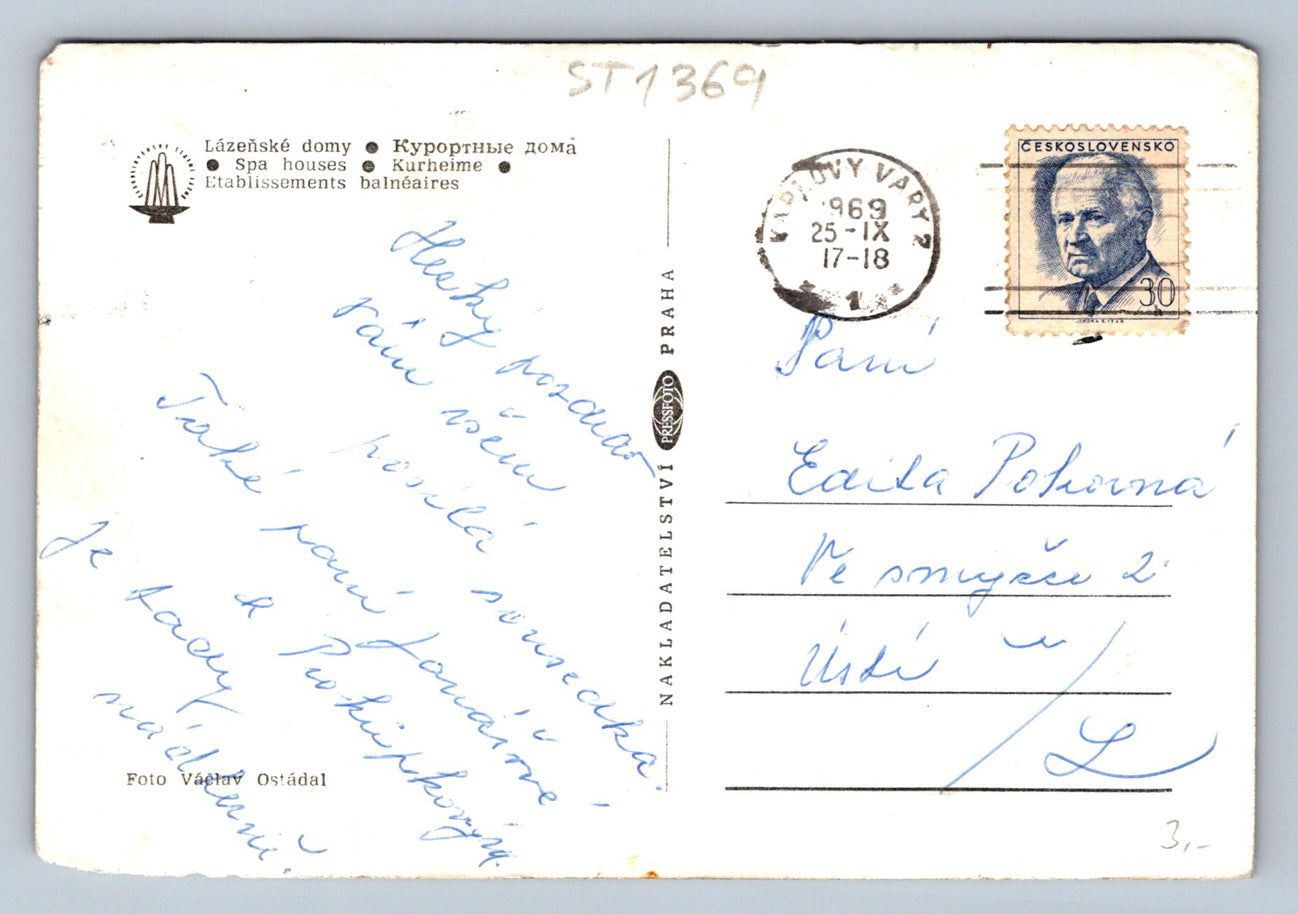 ST1369
Lázeňské domy ● Курортные дома
● Spa houses ● Kurheime ●
Etablissements balnéaires
Hezký pozdrav
Vám všem
posílá sousedka.
Také paní Janářové
a Prokůpkovým.
Je tady
nádherně.
Foto Václav Ostádal
NAKLADATELSTVÍ PRESSFOTO PRAHA
KARLOVY VARY 2
1969
25-IX
17-18
1
ČESKOSLOVENSKO
30
Paní
Edita Pokorná
Ve smyčce 2
Ústí n/
L
3,-